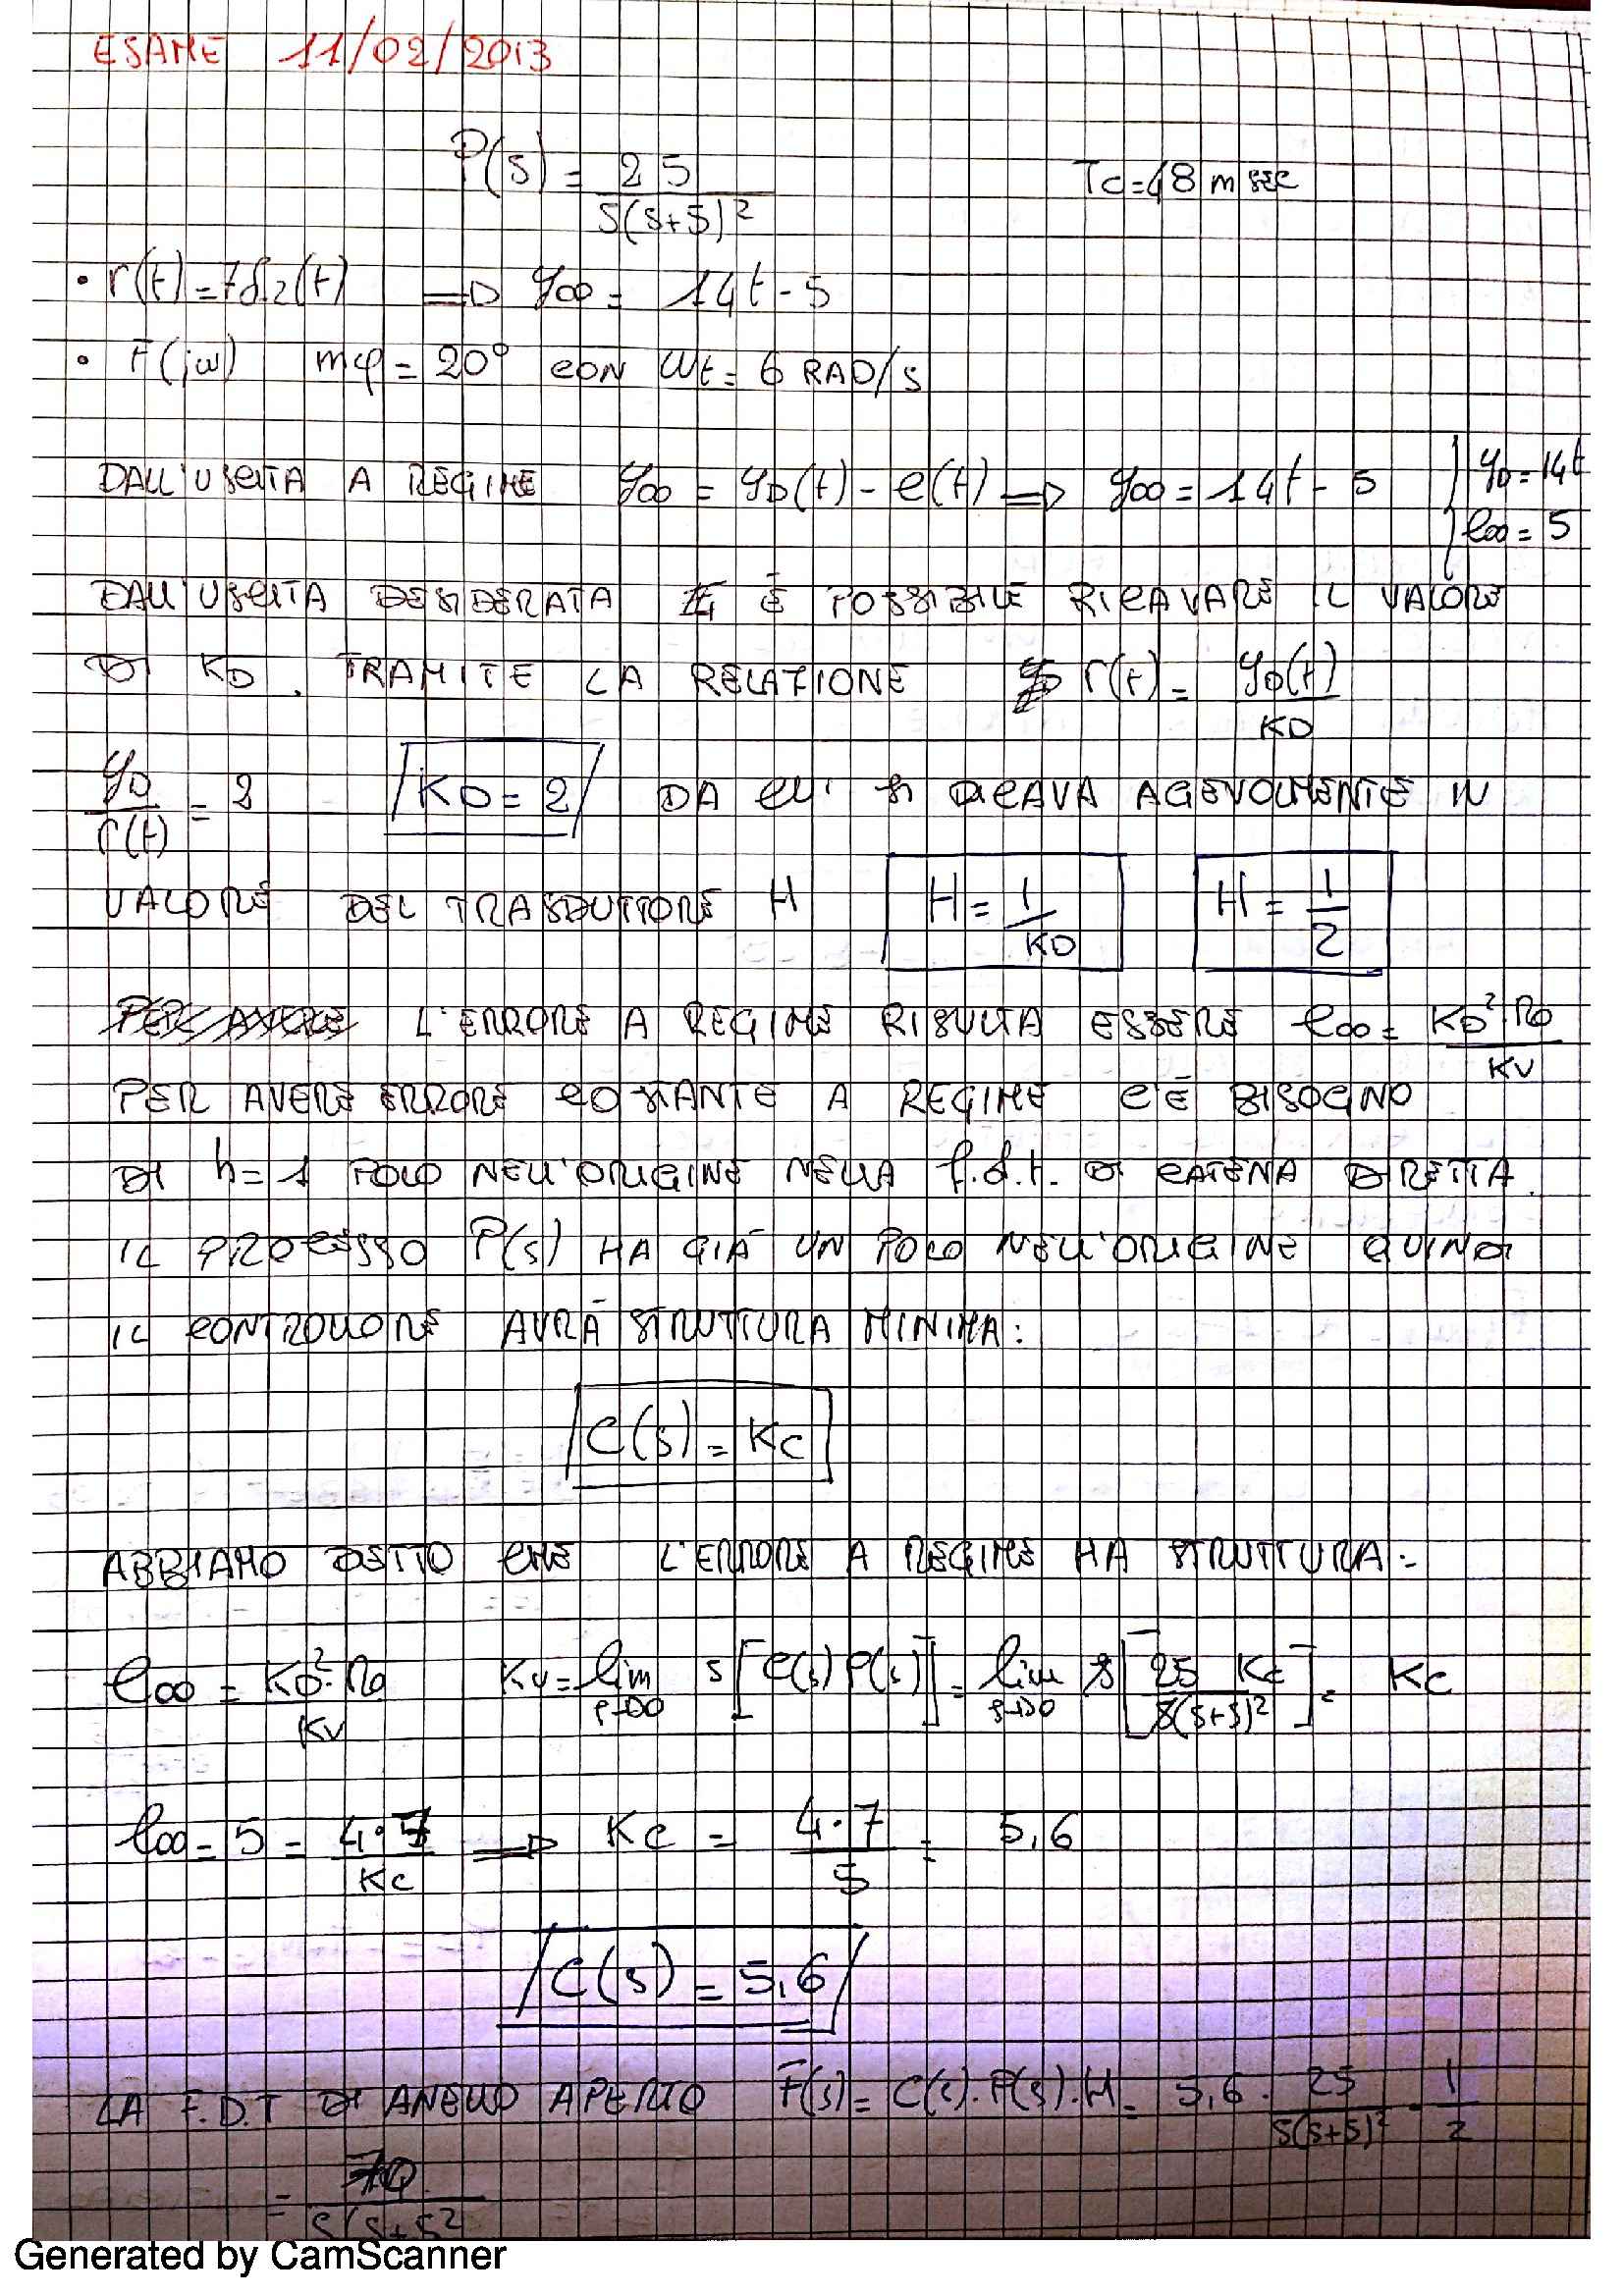 ESAME 11/02/2013
P(s) = 25 / s(s+5)² Tc = 48 msec
• r(t) = 7δ-2(t) ⟹ y∞ = 14t - 5
• F(jω) mφ = 20° CON ωt = 6 RAD/s
DALL'USCITA A REGIME y∞ = yD(t) - e(t) ⟹ y∞ = 14t - 5 } yD = 14t
e∞ = 5
DALL'USCITA DESIDERATA È POSSIBILE RICAVARE IL VALORE
DI KD. TRAMITE LA RELAZIONE r(t) = yD(t) / KD
yD / r(t) = 2 KD = 2 DA CUI SI RICAVA AGEVOLMENTE IN
VALORE DEL TRASDUTTORE H H = 1 / KD H = 1 / 2
PER AVERE L'ERRORE A REGIME RISULTA ESSERE e∞ = KD²·R0 / KV
PER AVERE ERRORE COSTANTE A REGIME C'È BISOGNO
DI h = 1 POLO NELL'ORIGINE NELLA f.d.t. DI CATENA DIRETTA.
IL PROCESSO P(s) HA GIÀ UN POLO NELL'ORIGINE QUINDI
IL CONTROLLORE AVRÀ STRUTTURA MINIMA:
C(s) = KC
ABBIAMO DETTO CHE L'ERRORE A REGIME HA STRUTTURA:
e∞ = KD²·R0 / KV KV = lim s→0 s[C(s)P(s)] = lim s→0 s[25 KC / s(s+5)²] = KC
e∞ = 5 = 4·7 / KC ⟹ KC = 4·7 / 5 = 5,6
C(s) = 5,6
LA F.D.T DI ANELLO APERTO F(s) = C(s)·P(s)·H = 5,6 · 25 / s(s+5)² · 1 / 2
= 70 / s(s+5²
Generated by CamScanner